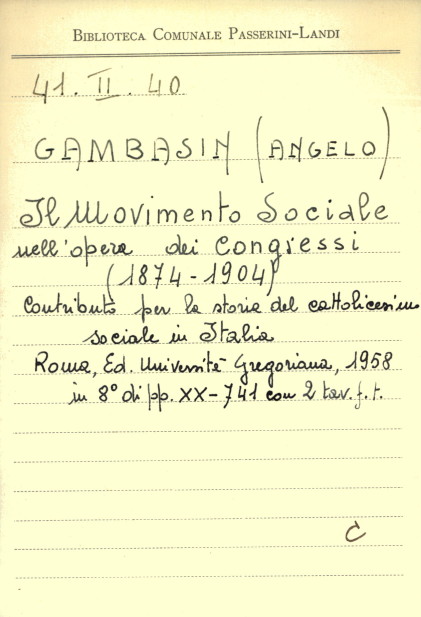 BIBLIOTECA COMUNALE PASSERINI-LANDI
41. II. 40
GAMBASIN (ANGELO)
Il Movimento Sociale
nell'opera dei Congressi
(1874-1904)
Contributo per la storia del cattolicesimo
sociale in Italia
Roma, Ed. Università Gregoriana, 1958
in 8° di pp. XX-741 con 2 tav. f. t.
C